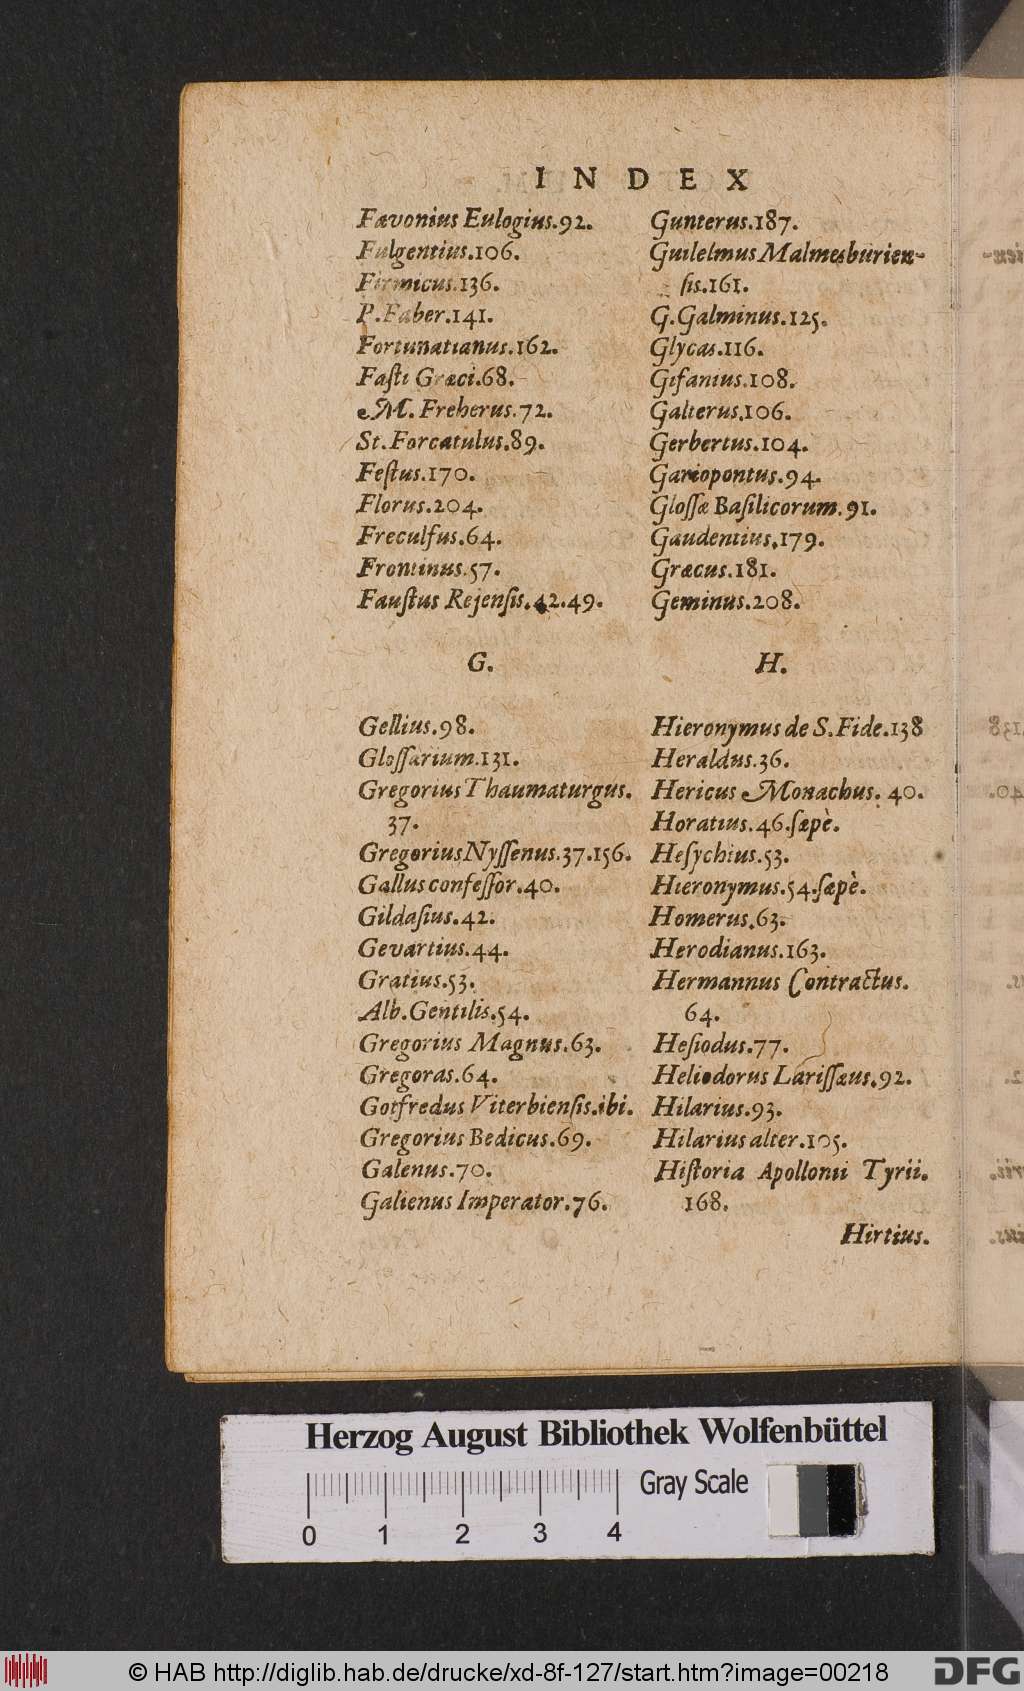 INDEX
Fævonius Eulogius.92.
Fulgentius.106.
Firmicus.136.
P. Faber.141.
Fortunatianus.162.
Faſti Græci.68.
M. Freherus.72.
St. Forcatulus.89.
Feſtus.170.
Florus.204.
Freculfus.64.
Frontinus.57.
Fauſtus Rejenſis.42.49.
G.
Gellius.98.
Gloſſarium.131.
Gregorius Thaumaturgus.
37.
Gregorius Nyſſenus.37.156.
Gallus confeſſor.40.
Gildaſius.42.
Gevartius.44.
Gratius.53.
Alb. Gentilis.54.
Gregorius Magnus.63.
Gregoras.64.
Gotfredus Viterbienſis.ibi.
Gregorius Bedicus.69.
Galenus.70.
Galienus Imperator.76.
Gunterus.187.
Guilelmus Malmesburien-
ſis.161.
G. Galminus.125.
Glycas.116.
Gifanius.108.
Galterus.106.
Gerbertus.104.
Gariopontus.94.
Gloſſæ Baſilicorum.91.
Gaudentius.179.
Græcus.181.
Geminus.208.
H.
Hieronymus de S. Fide.138
Heraldus.36.
Hericus Monachus. 40.
Horatius.46.ſæpè.
Heſychius.53.
Hieronymus.54.ſæpè.
Homerus.63.
Herodianus.163.
Hermannus Contractus.
64.
Heſiodus.77.
Heliodorus Lariſſæus.92.
Hilarius.93.
Hilarius alter.105.
Hiſtoria Apollonii Tyrii.
168.
Hirtius.
Herzog August Bibliothek Wolfenbüttel
Gray Scale
0 1 2 3 4
© HAB http://diglib.hab.de/drucke/xd-8f-127/start.htm?image=00218
DFG